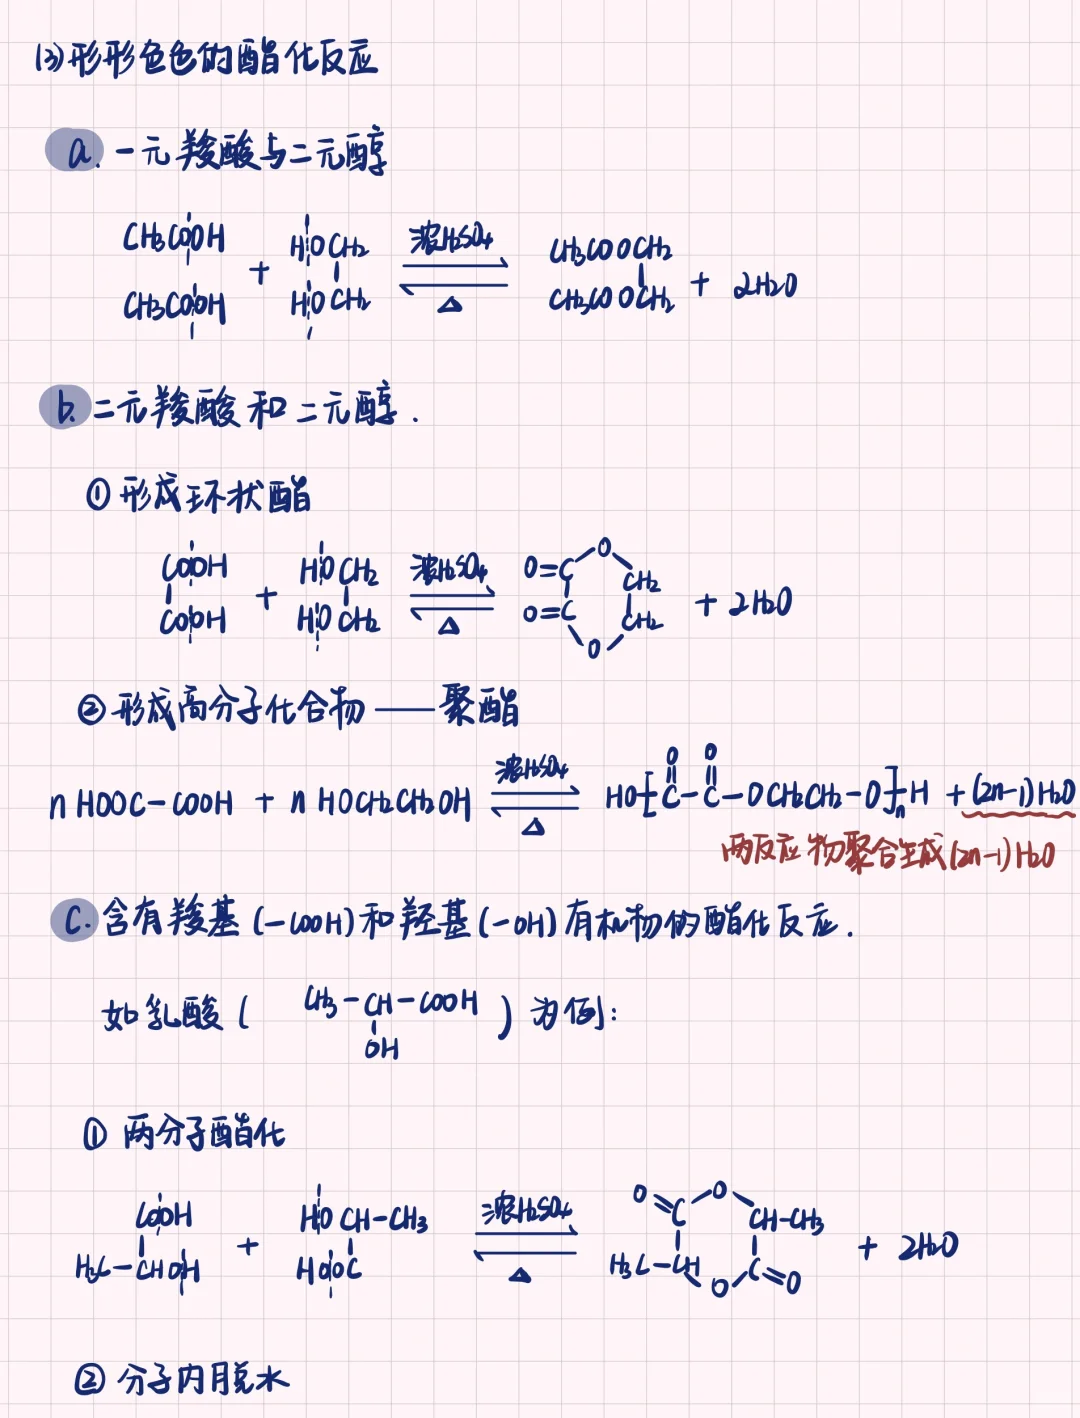 (3)形形色色的酯化反应
a. 一元羧酸与二元醇
CH3COOH HOCH2 浓H2SO4 CH3COOCH2
+ + 2H2O
CH3COOH HOCH2 △ CH3COOCH2
b. 二元羧酸和二元醇.
① 形成环状酯
COOH HOCH2 浓H2SO4 O=C O CH2
+ + 2H2O
COOH HOCH2 △ O=C O CH2
② 形成高分子化合物——聚酯
n HOOC-COOH + n HOCH2CH2OH 浓H2SO4 △ HO[C(=O)-C(=O)-OCH2CH2-O]nH + (2n-1)H2O
两反应物聚合生成(2n-1)H2O
c. 含有羧基(-COOH)和羟基(-OH)有机物的酯化反应.
如乳酸( CH3-CH-COOH )为例:
OH
① 两分子酯化
COOH HO CH-CH3 浓H2SO4 O=C O CH-CH3
+ + 2H2O
H3C-CHOH HOOC △ H3C-CH O C=O
② 分子内脱水